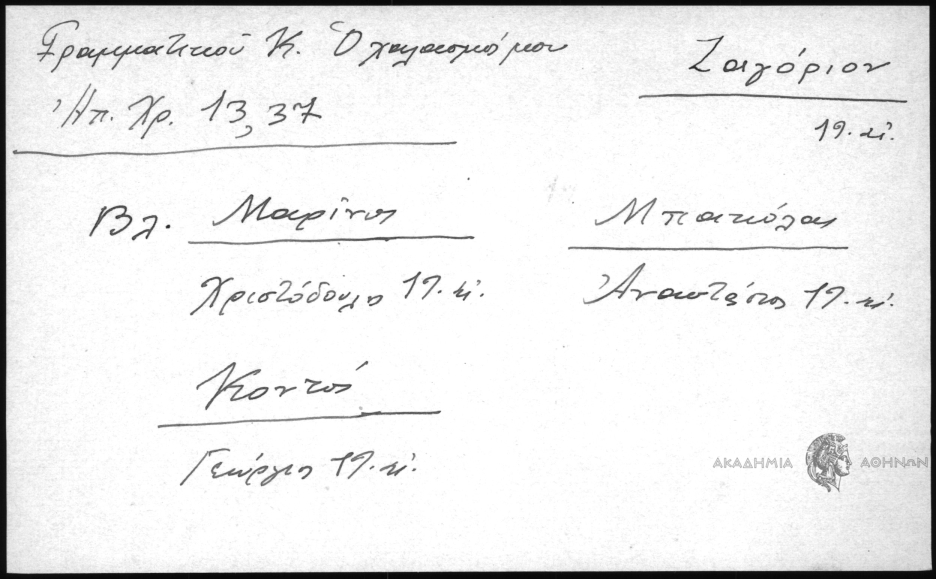 Γραμματικοῦ Κ. Ὁ χαλασμός μου
Ζαγόριον
Ἠπ. Χρ. 13, 37
19. αἰ.
Βλ. Μαρῖνος
Μπακόλας
Χριστόδουλος 19. αἰ.
Ἀναστάσιος 19. αἰ.
Κοντός
Γεώργιος 19. αἰ.
ΑΚΑΔΗΜΙΑ ΑΘΗΝΩΝ